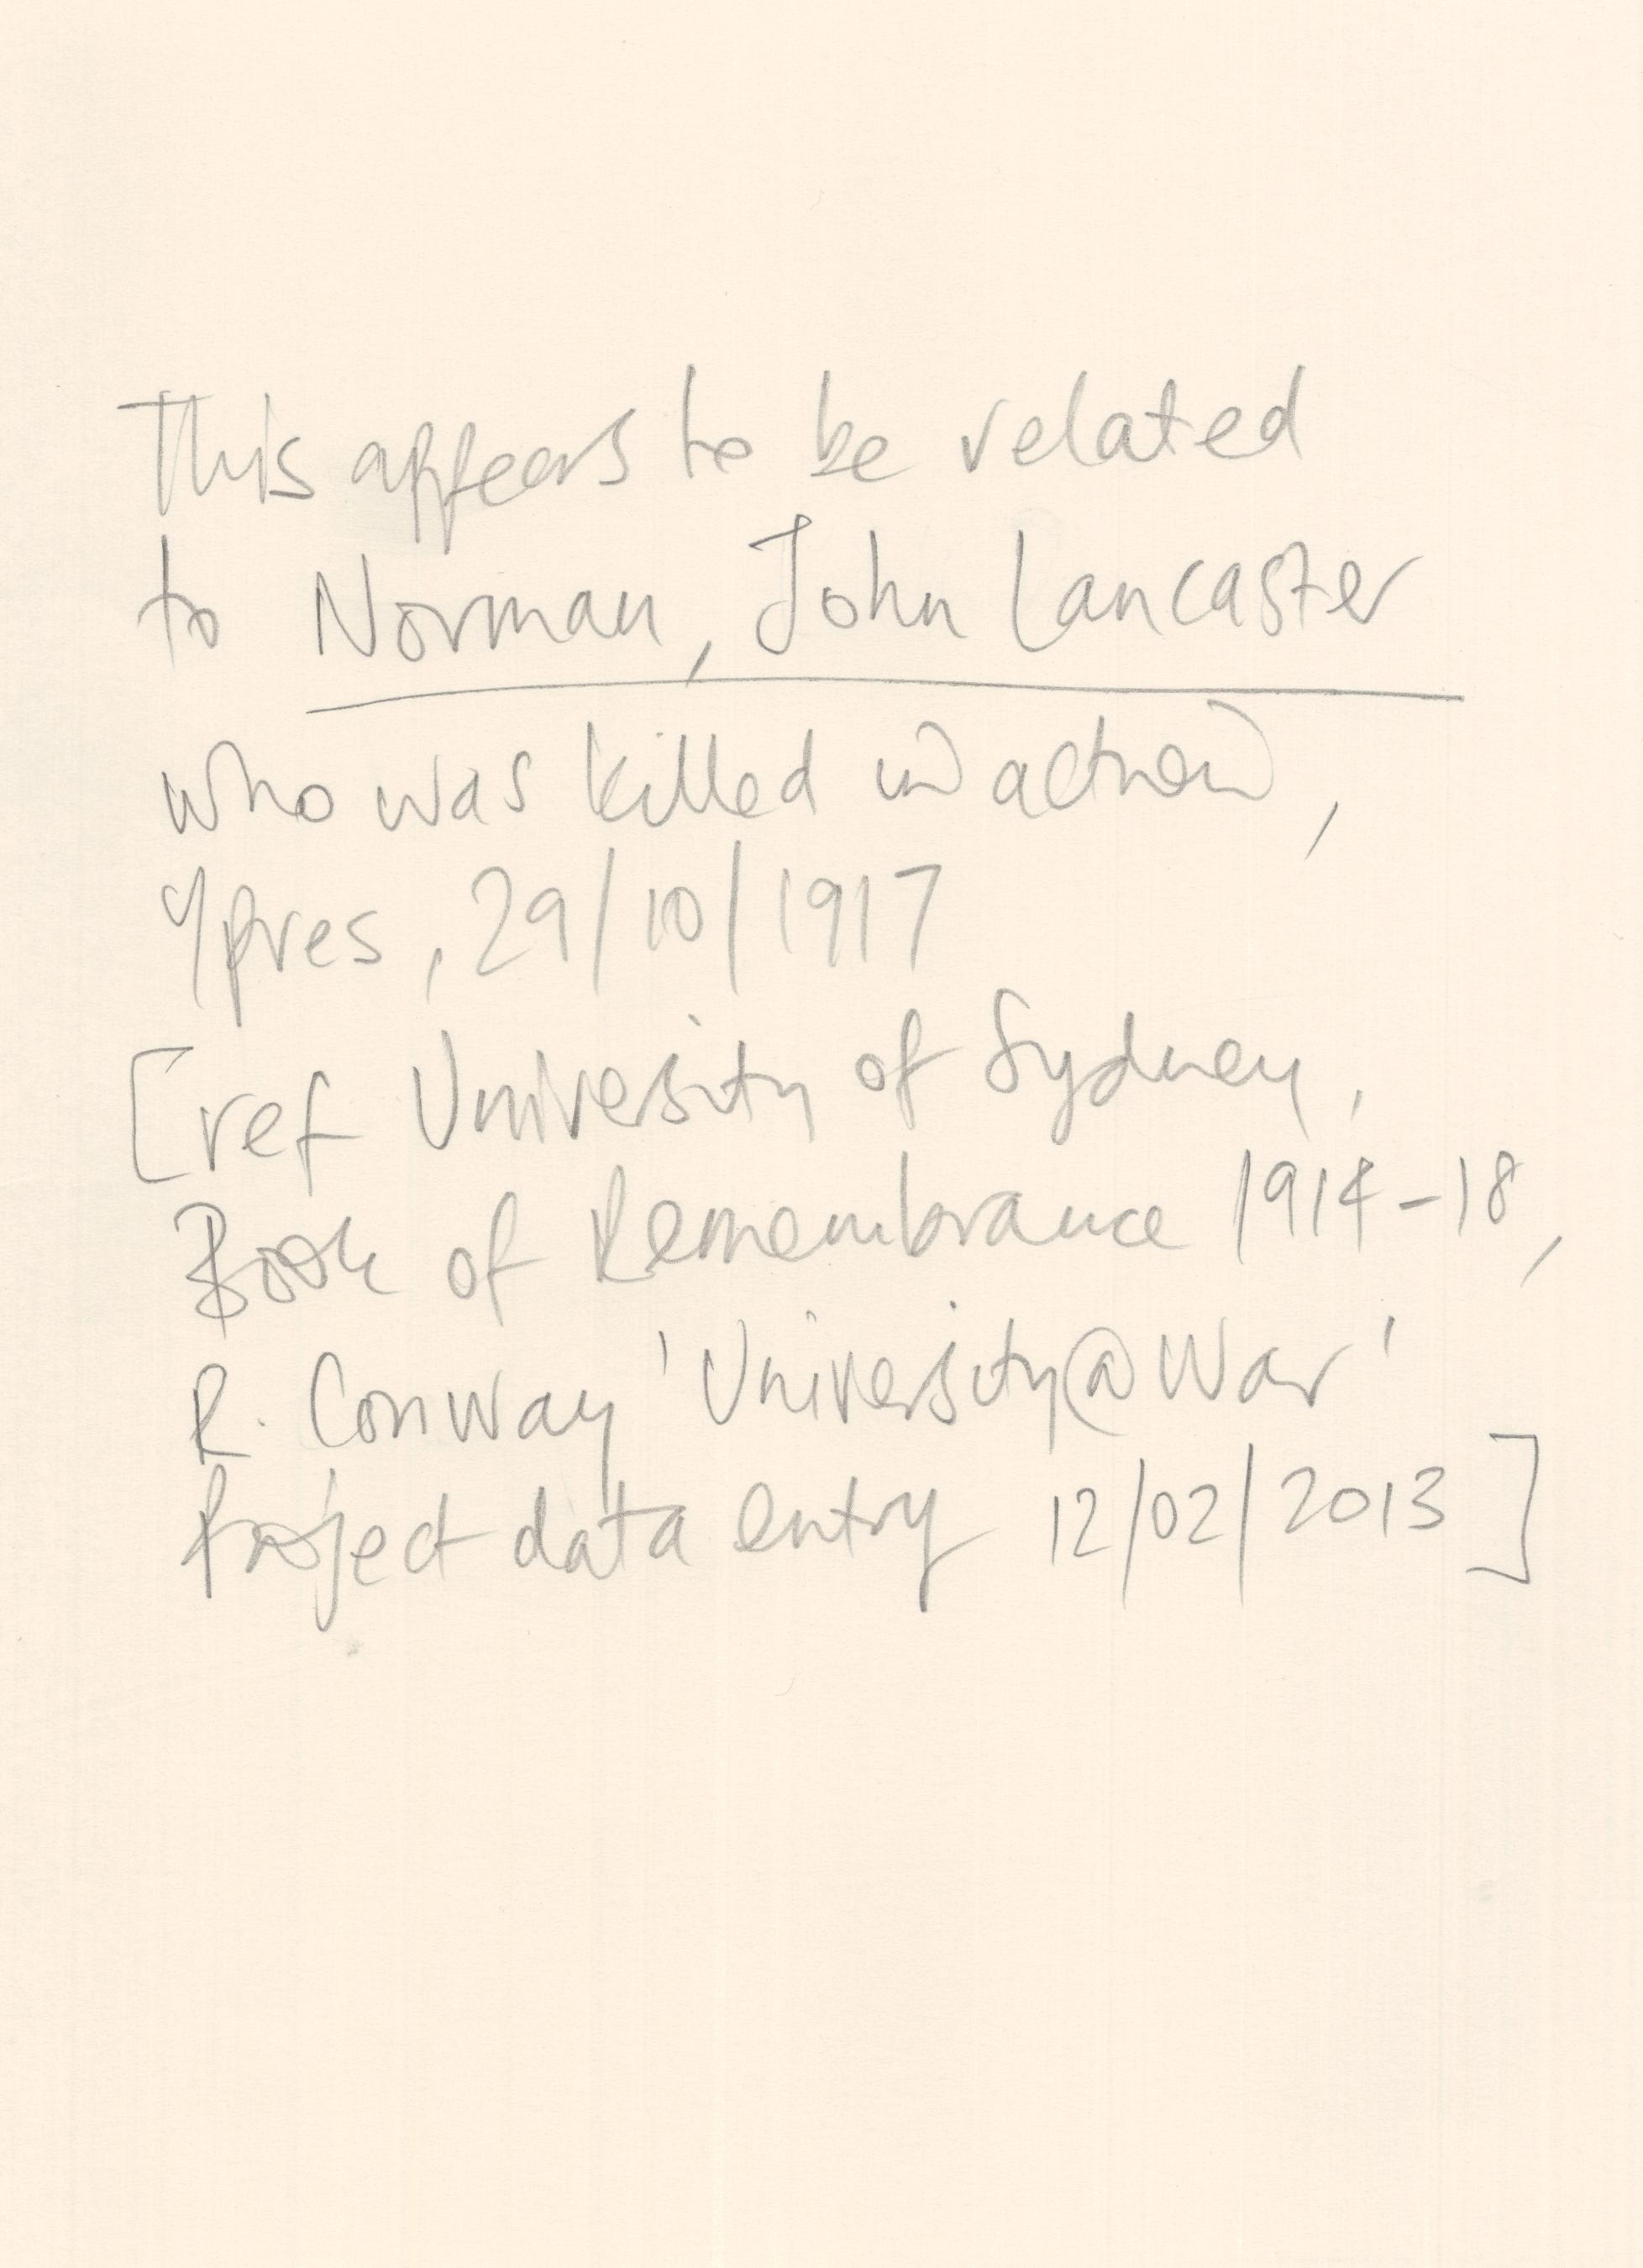 This appears to be related
to Norman, John Lancaster
who was killed in action,
Ypres, 29/10/1917
[ref University of Sydney,
Book of Remembrance 1914-18,
R. Conway 'University@War'
Project data entry 12/02/2013]